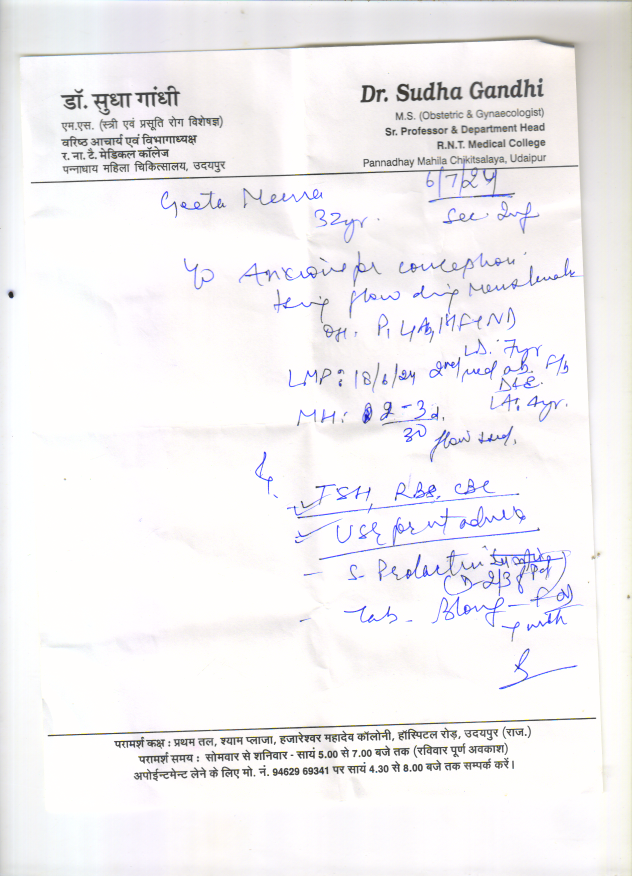 डॉ. सुधा गांधी
एम.एस. (स्त्री एवं प्रसूति रोग विशेषज्ञ)
वरिष्ठ आचार्य एवं विभागाध्यक्ष
र. ना. टै. मेडिकल कॉलेज
पन्नाधाय महिला चिकित्सालय, उदयपुर
Dr. Sudha Gandhi
M.S. (Obstetric & Gynaecologist)
Sr. Professor & Department Head
R.N.T. Medical College
Pannadhay Mahila Chikitsalaya, Udaipur
6/7/24
Geeta Meena
32yr. Sec. Inf
Anxious for conception
flow
OH. P1 L1 A1
LD. 7yr
LMP: 18/6/24 2nd ab. F/b
D&E.
MH: 2-3d. LA: 4yr.
30 flow
TSH, RBS, CBC
USG
- S. Prolactin
D-2/3
- Tab.
परामर्श कक्ष : प्रथम तल, श्याम प्लाजा, हजारेश्वर महादेव कॉलोनी, हॉस्पिटल रोड़, उदयपुर (राज.)
परामर्श समय : सोमवार से शनिवार - सायं 5.00 से 7.00 बजे तक (रविवार पूर्ण अवकाश)
अपोईन्टमेन्ट लेने के लिए मो. नं. 94629 69341 पर सायं 4.30 से 8.00 बजे तक सम्पर्क करें।